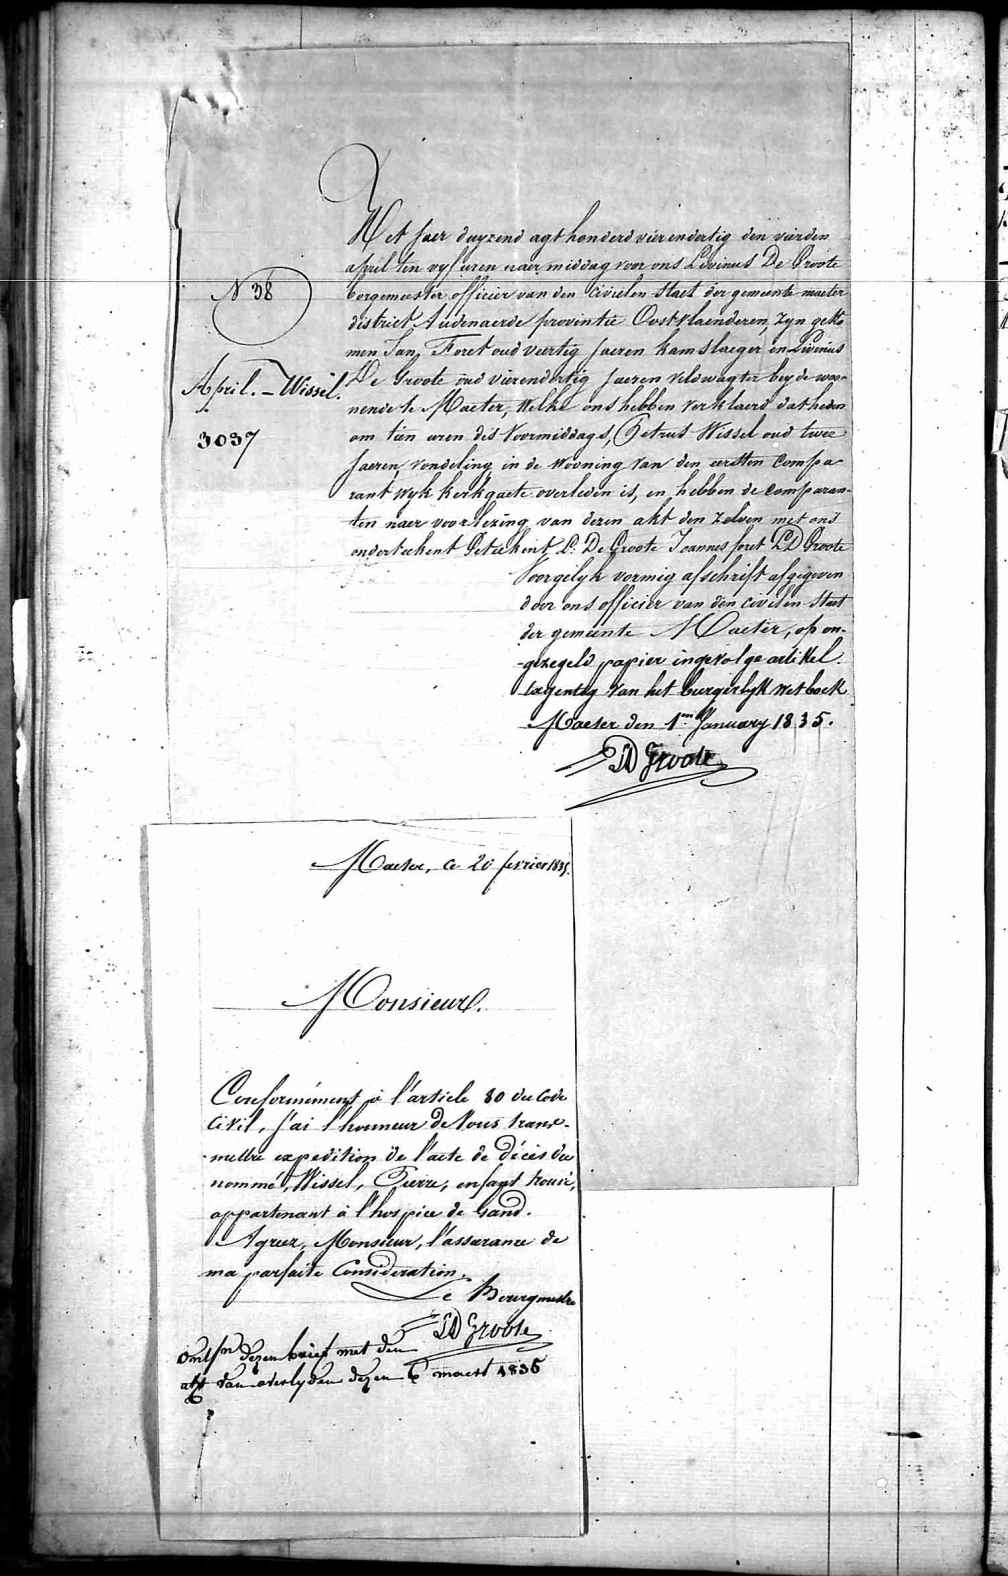 N 38
April. – Wissel.
3037
Het jaer duyzend agt honderd vierendertig den vierden
april ten vyf uren naer middag voor ons Livinus De Groote
borgemeester officier van den Civielen Staet der gemeente maeter
district Audenaerde provintie Oostvlaenderen, zyn geko
men Jan, Foret oud veertig jaeren kamslaeger en Livinus
De Groote oud vierendertig jaeren veldwagter beyde woo-
nende te Maeter, welke ons hebben verklaerd dat heden
om tien uren des Voormiddags, Petrus Wissel oud twee
jaeren, vondeling in de wooning van den eersten compa
rant wyk kerkgaete overleden is, en hebben de comparan-
ten naer voorlezing van dezen akt den zelven met ons
onderteekent Geteekent L: De Groote Joannes foret LD Groote
Voorgelyk vormig afschrift afgegeven
door ons officier van den civielen Staet
der gemeente Maeter, op on-
gezegeld papier ingevolge artikel
tagentig van het burgerlyk wetboek
Maeter den 1en January 1835.
LD Groote
Maeter, ce 20 fevrier 1835.
Monsieur.
Conformément à l'article 80 du Code
Civil, j'ai l'honneur de Vous trans-
mettre expedition de l'acte de décès du
nommé, Wissel, Pierre, enfant trouvé,
appartenant à l'hospice de Gand.
Agréez, Monsieur, l'assurance de
ma parfaite Consideration.
Le Bourgmestre
LD Groote
dezen brief met den
akt van overlyden dezen 6 maert 1835